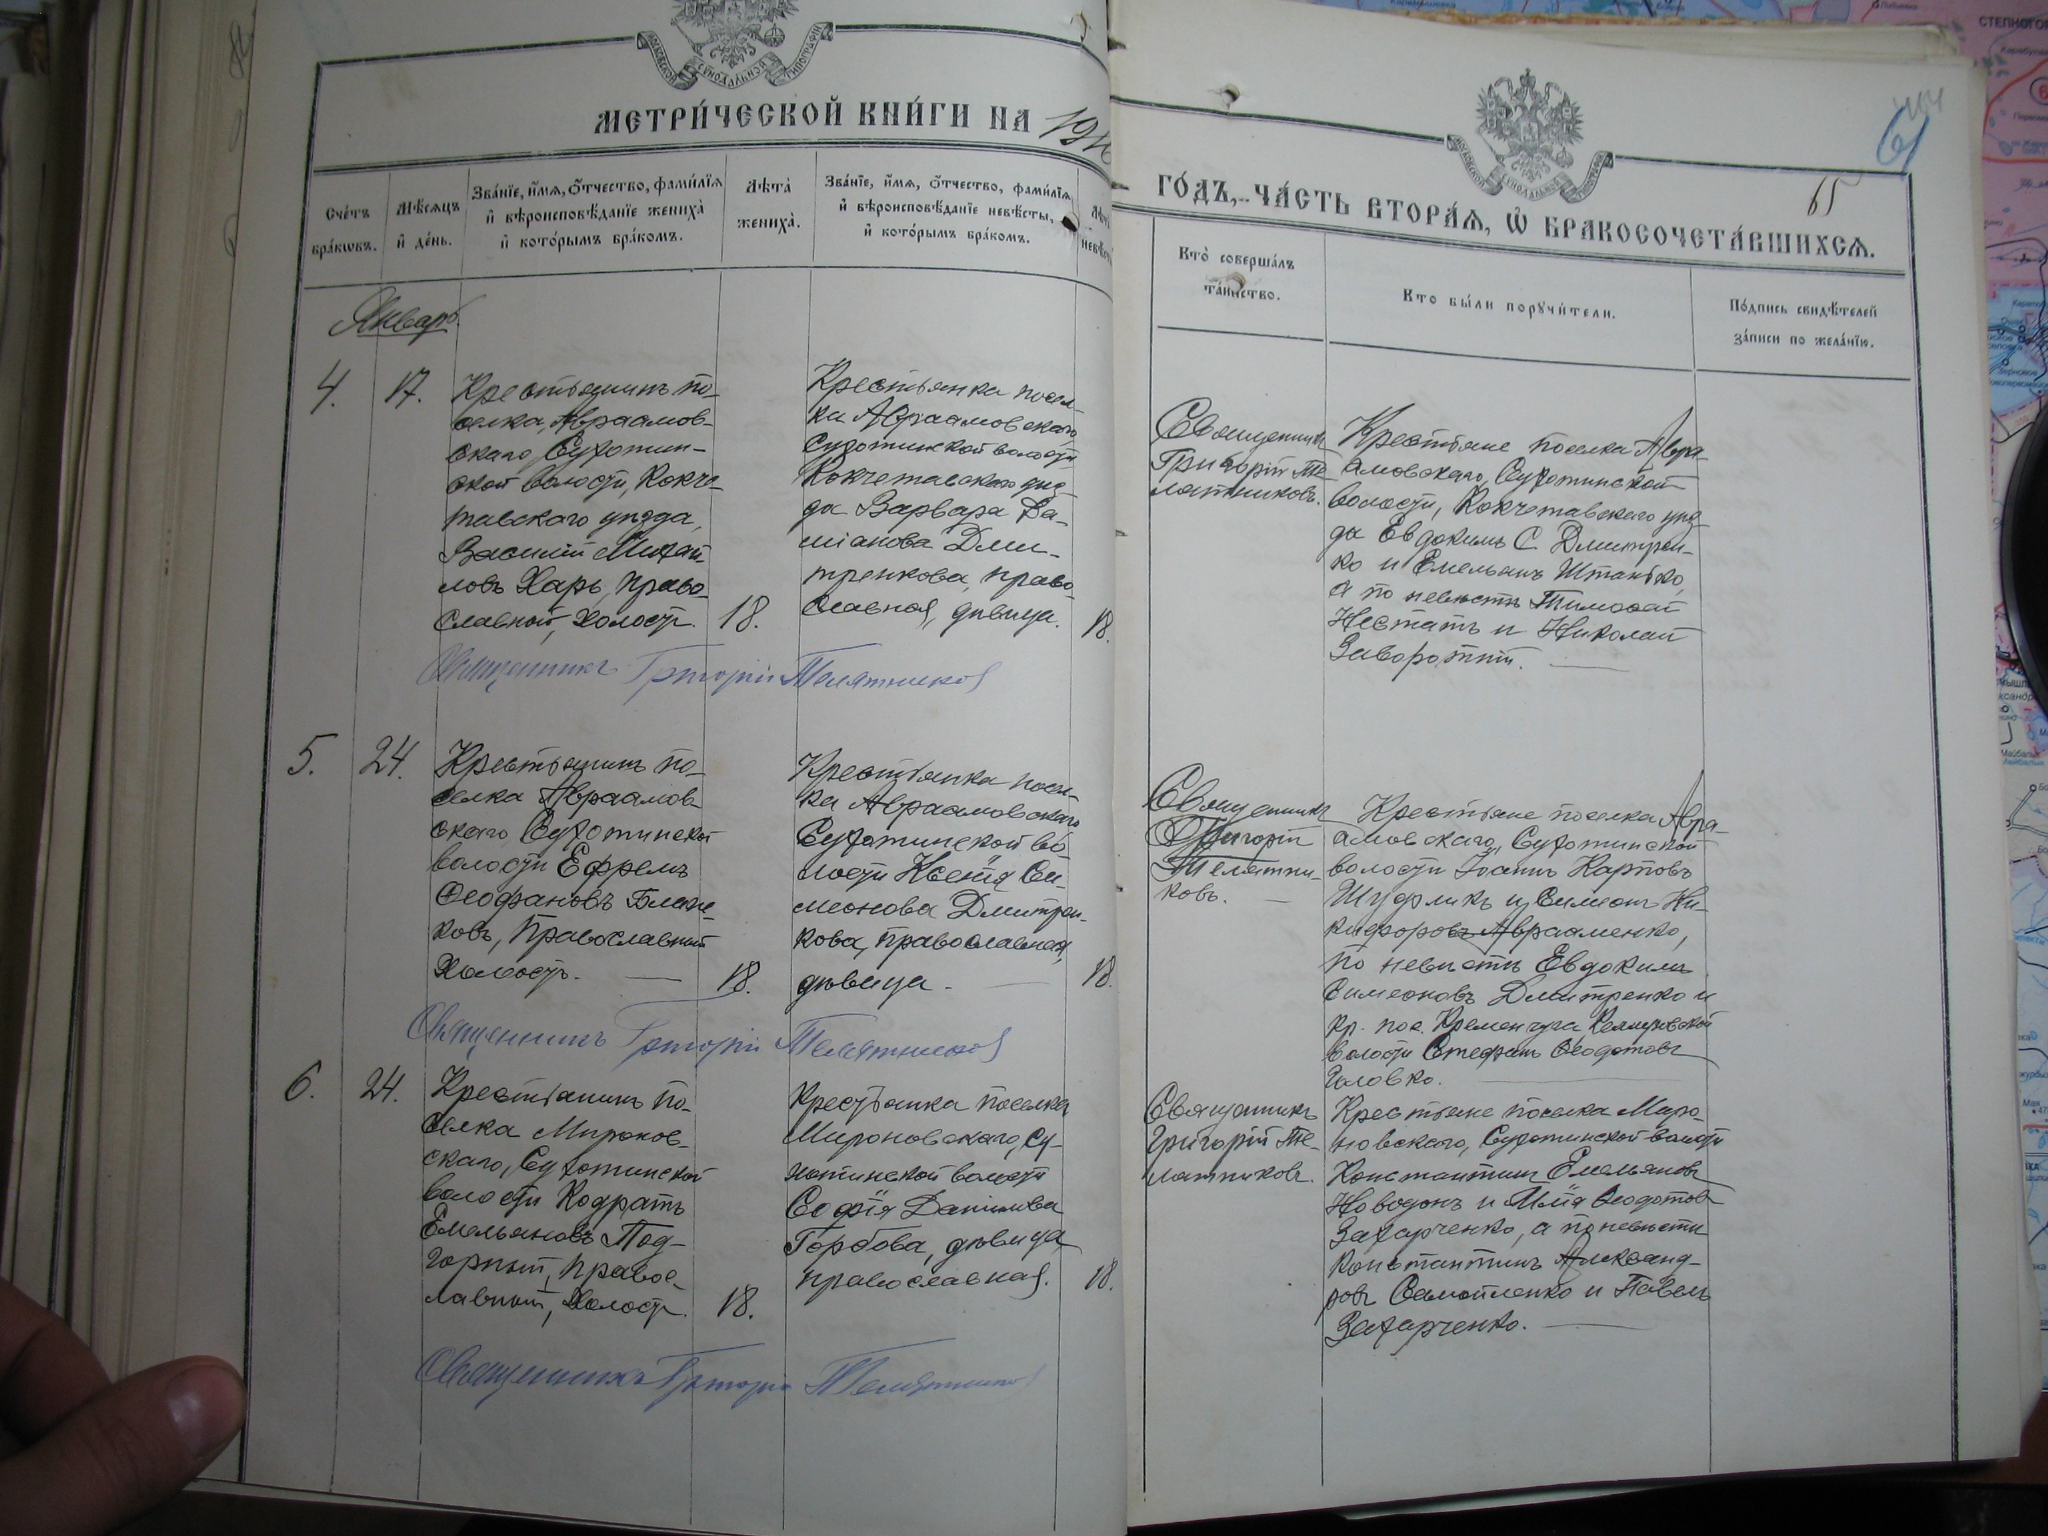 МЕТРИ́ЧЕСКОЙ КНИ́ГИ НА
ГО́ДЪ, ЧА́СТЬ ВТОРА́Я, Ѽ БРАКОСОЧЕТА́ВШИХСЯ.
65
Сче́тъ
бра́кѡвъ.
Мѣ́сяцъ
и҆ де́нь.
Зва́нїе, и҆́мя, ѻ҆́тчество, фами́лїя
и҆ вѣроисповѣ́данїе жениха̀
и҆ кото́рымъ бра́комъ.
Лѣта̀
жениха̀.
Зва́нїе, и҆́мя, ѻ҆́тчество, фами́лїя
и҆ вѣроисповѣ́данїе невѣ́сты,
и҆ кото́рымъ бра́комъ.
Кто̀ соверша́лъ
та́инство.
Кто бы́ли порꙋчи́тели.
По́дпись свидѣ́телей
за́писи по жела́нїю.
Январь.
4.
17.
Крестьянинъ по-
селка Авраамов-
скаго Сухотин-
ской волости, Кокче-
тавскаго уѣзда,
Василій Михай-
ловъ Харь, право-
славной, холостъ.
18.
Крестьянка посел-
ка Авраамовскаго
Сухотинской волости
Кокчетавскаго уѣз-
да Варвара Да-
міанова Дми-
тренкова, право-
славная, дѣвица.
18.
Священникъ
Григорій Те-
лятниковъ.
Крестьяне поселка Авра-
амовскаго, Сухотинской
волости, Кокчетавскаго уѣз-
да Евдокимъ С. Дмитрен-
ко и Емельянъ Штанько,
а по невѣстѣ Тимофей
Нестатъ и Николай
Заворотній.
Священникъ Григорій Телятников
5.
24.
Крестьянинъ по-
селка Авраамов-
скаго Сухотинской
волости Ефремъ
Ѳеофановъ
ковъ, Православный
Холостъ.
18.
Крестьянка посел-
ка Авраамовскаго
Сухотинской во-
лости Ксенія Си-
меонова Дмитрен-
кова, православная,
дѣвица.
18.
Священникъ
Григорій
Телятни-
ковъ.
Крестьяне поселка Авра-
амовскаго, Сухотинской
волости Іоаннъ Карповъ
Шудрикъ и Симеонъ Ни-
кифоровъ Авраменко,
по невѣстѣ Евдокимъ
Симеоновъ Дмитренко и
кр. пос. Кременчуга
волости Стефанъ Ѳеодотовъ
Головко.
Священникъ Григорій Телятников
6.
24.
Крестьянинъ по-
селка Миронов-
скаго, Сухотинской
волости Кодратъ
Емельяновъ Под-
горный, правос-
лавный, холостъ.
18.
Крестьянка поселка
Мироновскаго, Су-
хотинской волости
Софія Даниілова
Горбова, дѣвица
православная.
18.
Священникъ
Григорій Те-
лятниковъ.
Крестьяне поселка Миро-
новскаго, Сухотинской волости
Константинъ Емельяновъ
Новодонъ и Илія Ѳеодотов
Захарченко, а по невѣсти
Константинъ Александ-
ровъ Самойленко и Павелъ
Захарченко.
Священникъ Григорій Телятников